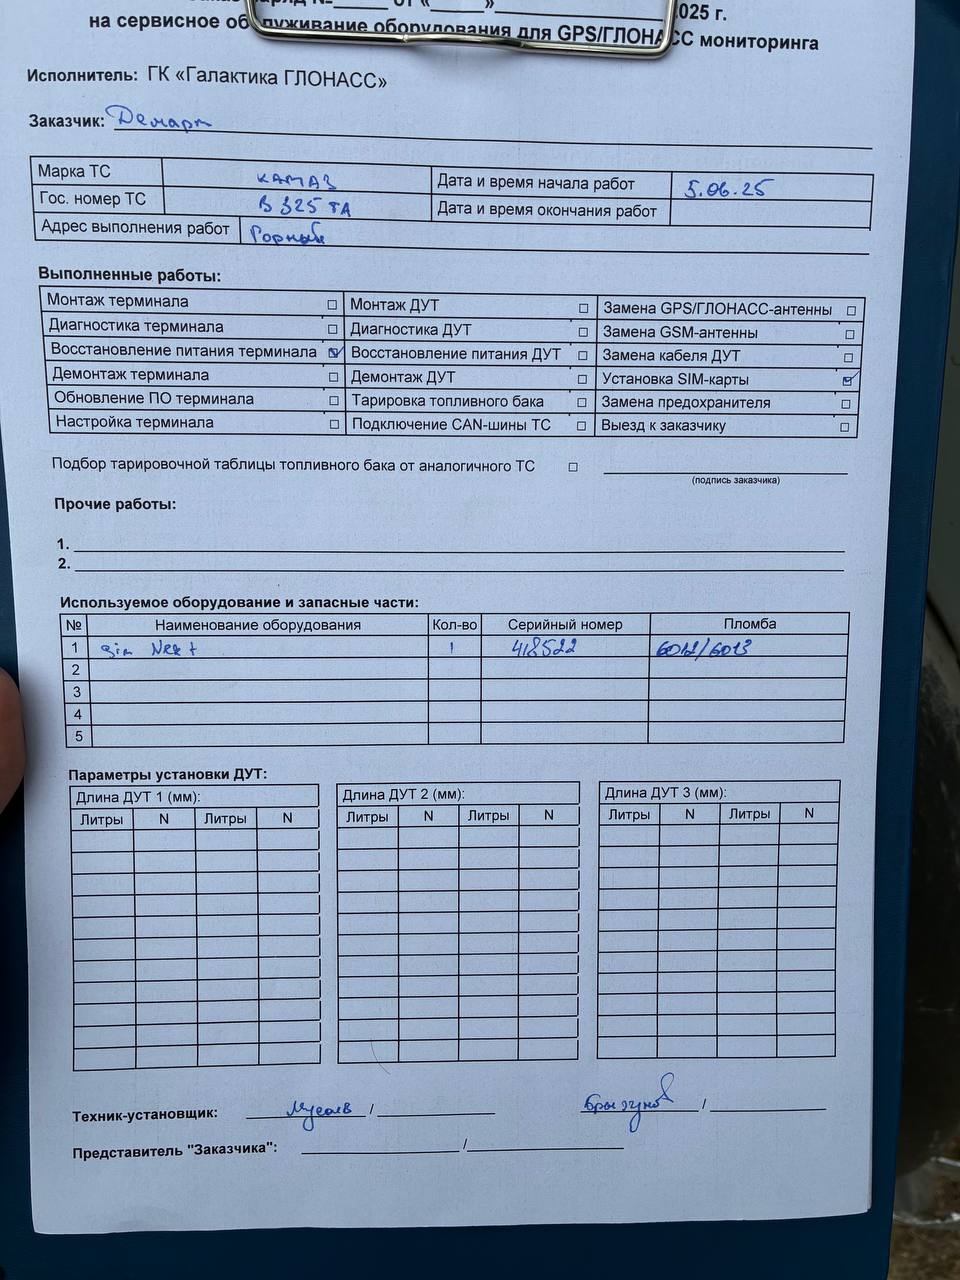 025 г.
на сервисное обслуживание оборудования для GPS/ГЛОНАСС мониторинга
Исполнитель: ГК «Галактика ГЛОНАСС»
Заказчик: Демарк
Марка ТС КАМАЗ Дата и время начала работ 5.06.25
Гос. номер ТС В 325 ТА Дата и время окончания работ
Адрес выполнения работ Горный
Выполненные работы:
Монтаж терминала ☐ Монтаж ДУТ ☐ Замена GPS/ГЛОНАСС-антенны ☐
Диагностика терминала ☐ Диагностика ДУТ ☐ Замена GSM-антенны ☐
Восстановление питания терминала ☑ Восстановление питания ДУТ ☐ Замена кабеля ДУТ ☐
Демонтаж терминала ☐ Демонтаж ДУТ ☐ Установка SIM-карты ☑
Обновление ПО терминала ☐ Тарировка топливного бака ☐ Замена предохранителя ☐
Настройка терминала ☐ Подключение CAN-шины ТС ☐ Выезд к заказчику ☐
Подбор тарировочной таблицы топливного бака от аналогичного ТС ☐
(подпись заказчика)
Прочие работы:
1.
2.
Используемое оборудование и запасные части:
№ Наименование оборудования Кол-во Серийный номер Пломба
1 sim Nekt 1 418522 6012/6013
2
3
4
5
Параметры установки ДУТ:
Длина ДУТ 1 (мм): Длина ДУТ 2 (мм): Длина ДУТ 3 (мм):
Литры N Литры N Литры N Литры N Литры N Литры N
Техник-установщик: Мусаев / Брызгунов /
Представитель "Заказчика": /